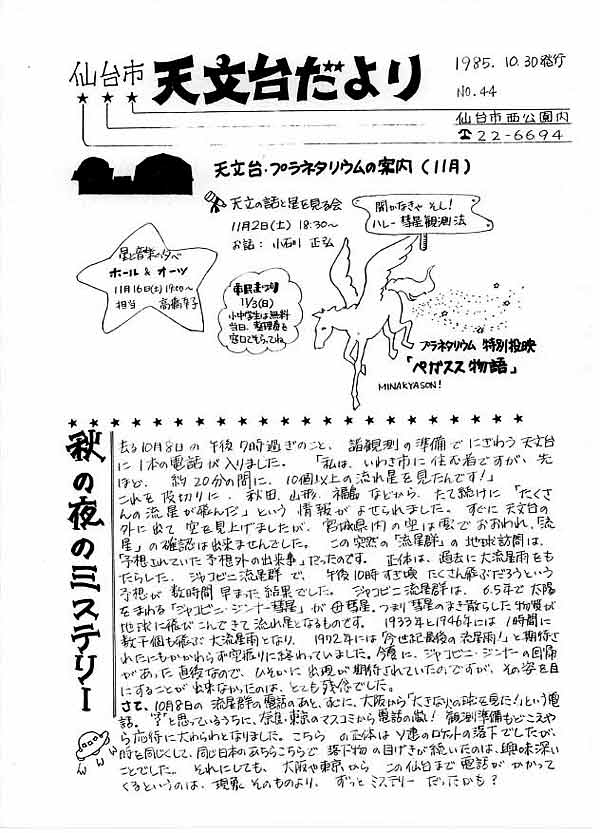 仙台市
天文台だより
1985. 10. 30発行
NO.44
仙台市西公園内
☎22-6694
天文台・プラネタリウムの案内(11月)
天文の話と星を見る会
11月2日(土) 18:30〜
お話: 小石川 正弘
聞かなきゃ そし!
ハレー彗星観測法
星と音楽の夕べ
ホール & オーツ
11月16日(土) 19:00〜
担当 高橋幸子
市民まつり
11/3(日)
小中学生は無料
当日、整理券を
窓口でもらってね
プラネタリウム 特別投映
「ペガスス物語」
MINAKYASON!
秋の夜のミステリー
去る10月8日の午後7時過ぎのこと、諸観測の準備でにぎわう天文台
に1本の電話が入りました。「私は、いわき市に住む者ですが、先
ほど、約20分の間に、10個以上の流れ星を見たんです!」
これを皮切りに、秋田、山形、福島などから、たて続けに「たくさ
んの流星が飛んだ」という情報がよせられました。すぐに天文台の
外に出て空を見上げましたが、宮城県内の空は雲でおおわれ、「流
星」の確認は出来ませんでした。この突然の「流星群」の地球訪問は、
「予想されていた予想外の出来事」だったのです。正体は、過去に大流星雨をも
たらした、ジャコビニ流星群で、午後10時すぎ頃たくさん飛ぶだろうという
予想が数時間早まった結果でした。ジャコビニ流星群は、6.5年で太陽
をまわる「ジャコビニ・ジンナー彗星」が母彗星、つまり彗星のまき散らした物質が
地球に飛びこんできて流れ星となるものです。1933年と1946年には1時間に
数千個も飛ぶ大流星雨となり、1972年には「今世紀最後の流星雨!」と期待さ
れたにもかかわらず空振りに終わっていました。今度は、ジャコビニ・ジンナーの回帰
があった直後なので、ひそかに出現が期待されていたのですが、その姿を目
にすることが出来なかったのは、とても残念でした。
さて、10月8日の流星群の電話のあと、次に、大阪から「大きな火の球を見た!」という電
話。"?"と思っているうちに、奈良・東京のマスコミから電話の嵐! 観測準備もどこえや
ら応待に大わらわとなりました。こちらの正体はソ連のロケットの落下でしたが、
時を同じくして、同じ日本のあちらこちらで落下物の目げきが続いたのは、興味深い
ことでした。それにしても、大阪や東京からこの仙台まで電話がかかって
くるというのは、現象そのものより、ずっとミステリーだったかも?